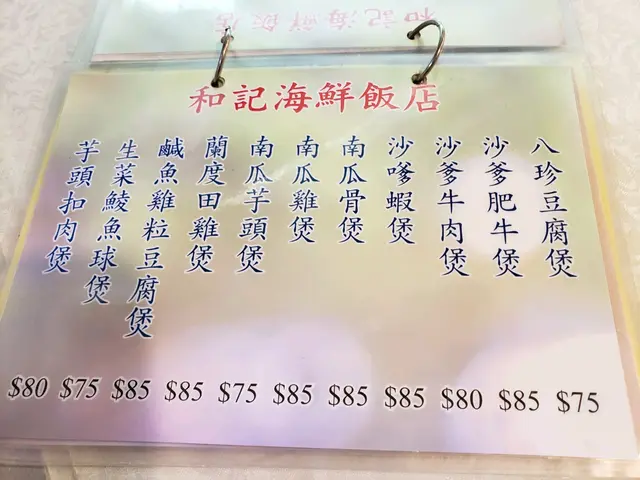 和記海鮮飯店
和記海鮮飯店
八珍豆腐煲
沙爹肥牛煲
沙爹牛肉煲
沙嗲蝦煲
南瓜骨煲
南瓜雞煲
南瓜芋頭煲
蘭度田雞煲
鹹魚雞粒豆腐煲
生菜鯪魚球煲
芋頭扣肉煲
$80 $75 $85 $85 $75 $85 $85 $85 $80 $85 $75